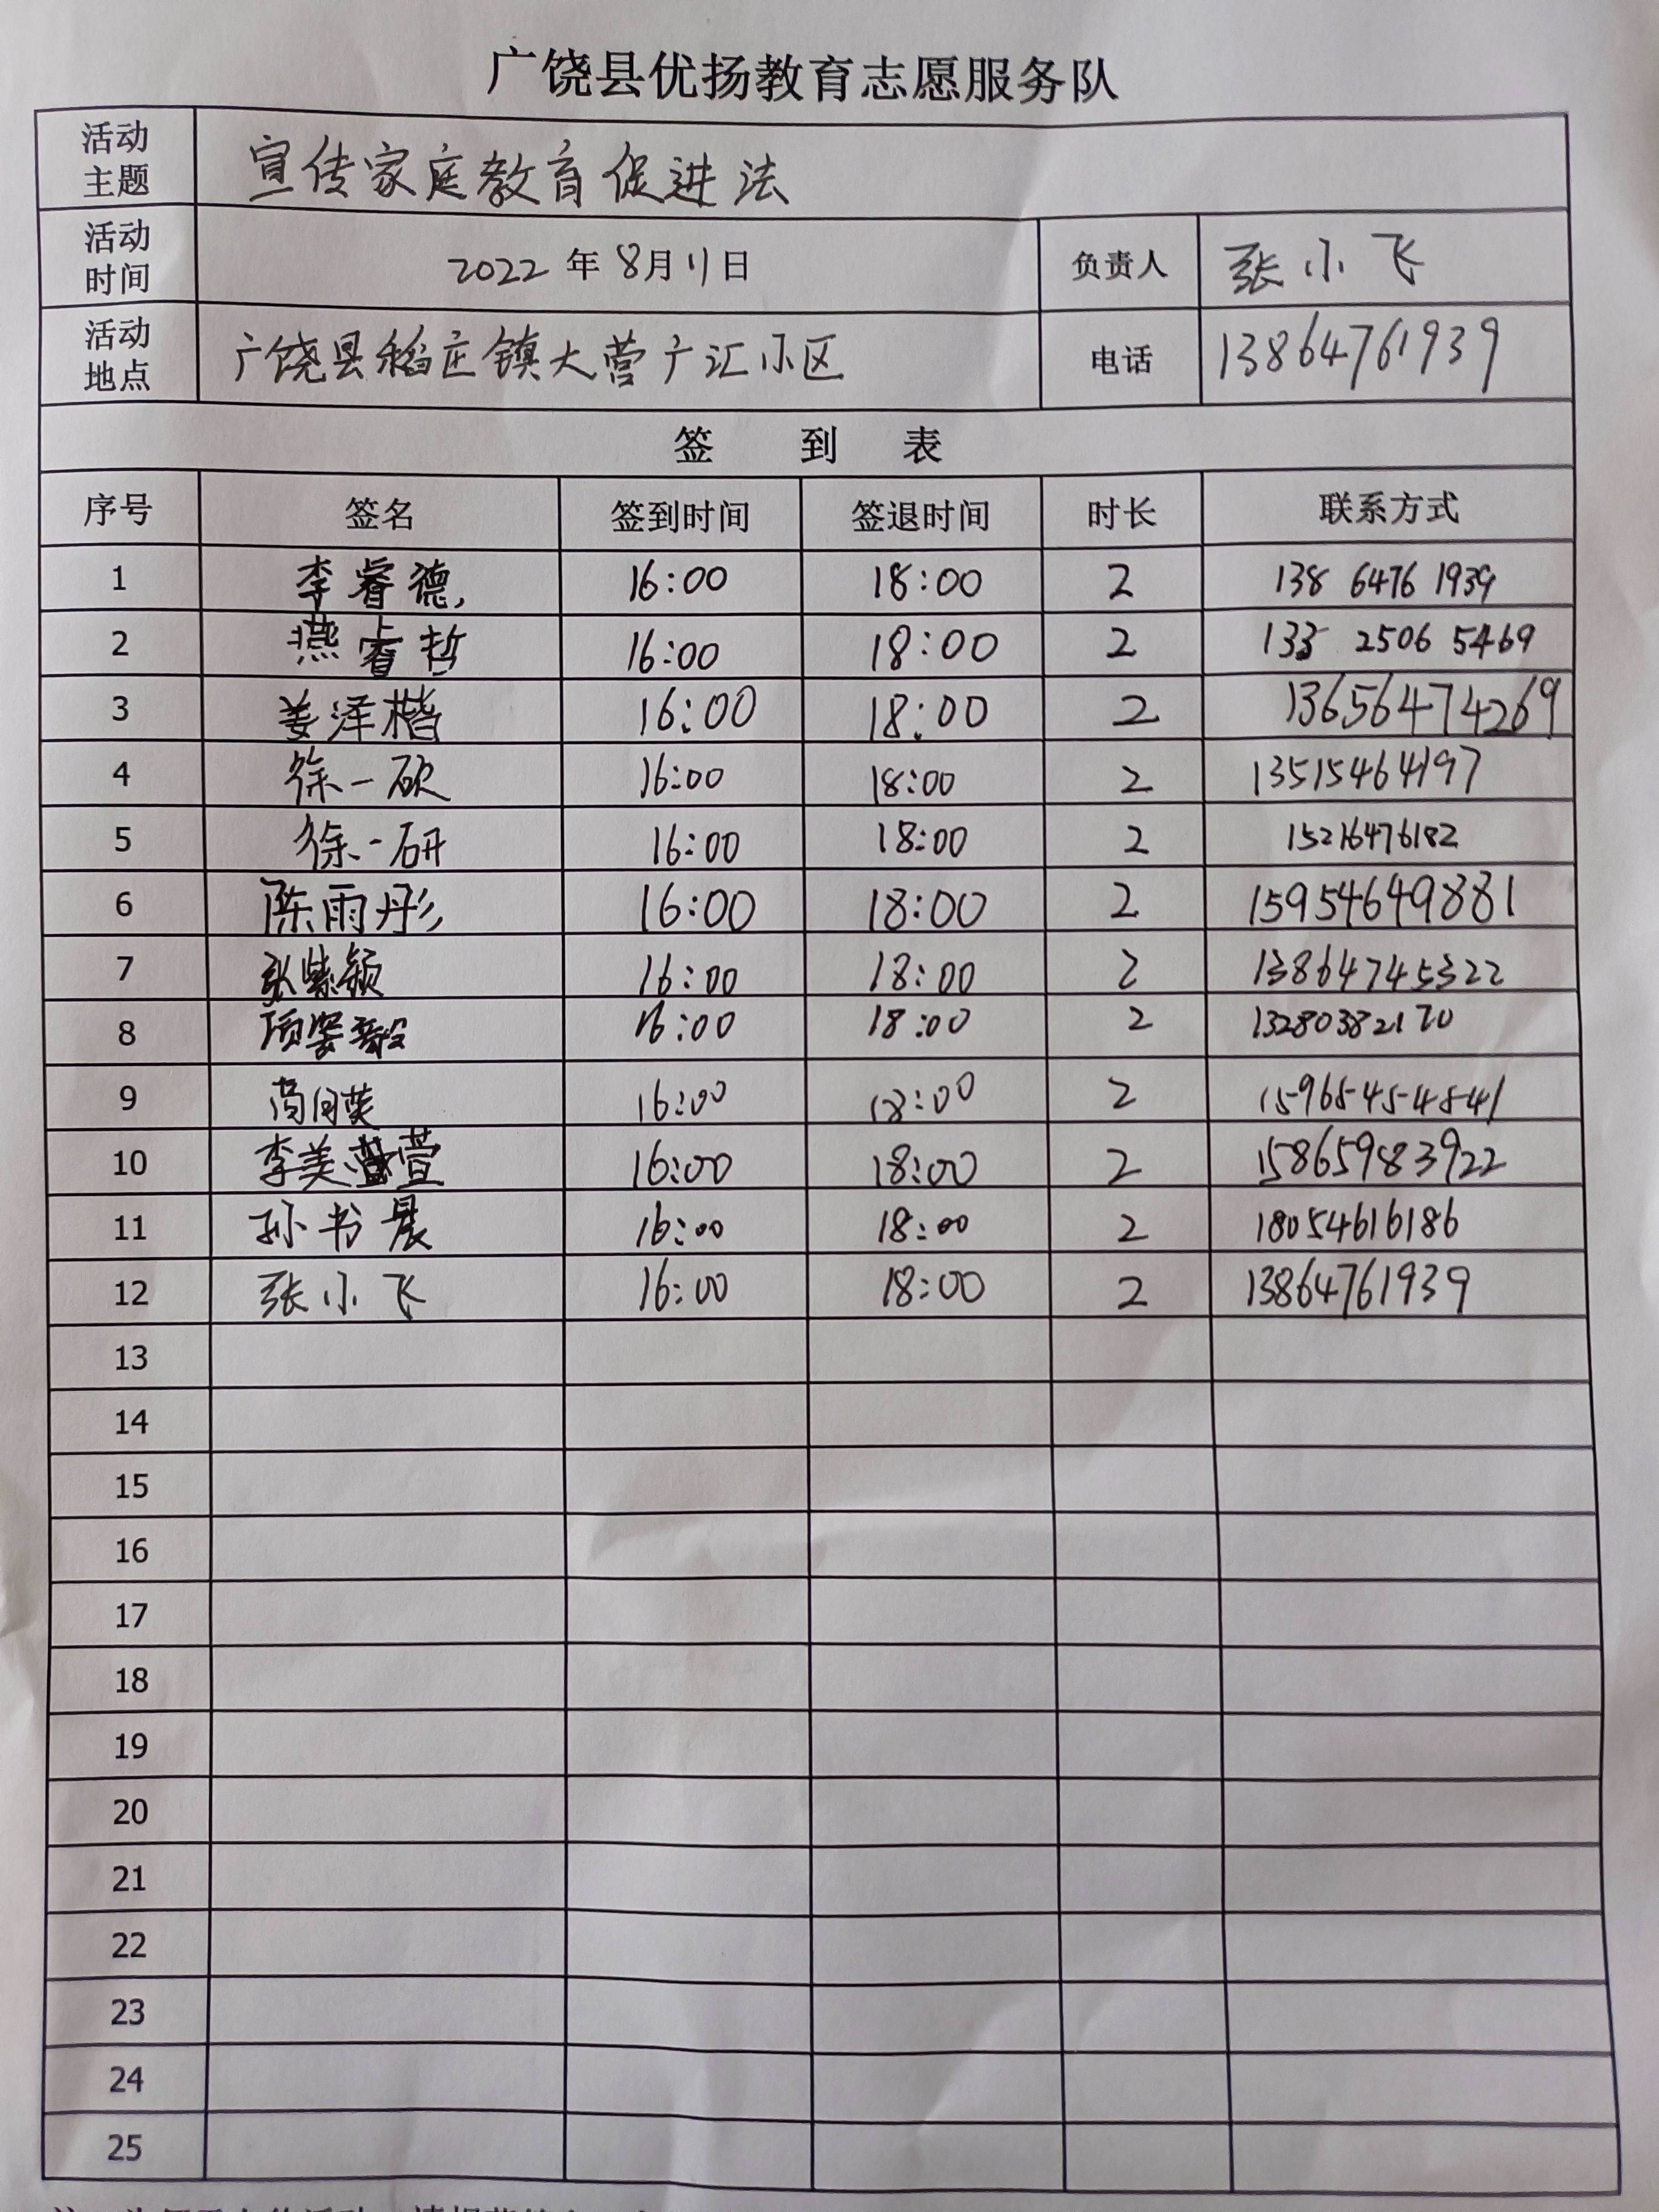 广饶县优扬教育志愿服务队
活动主题 宣传家庭教育促进法
活动时间 2022年8月11日 负责人 张小飞
活动地点 广饶县稻庄镇大营广汇小区 电话 13864761939
签到表
序号 签名 签到时间 签退时间 时长 联系方式
1 李睿德 16:00 18:00 2 138 6476 1939
2 燕睿哲 16:00 18:00 2 133 2506 5469
3 姜泽楷 16:00 18:00 2 13656474269
4 徐一砍 16:00 18:00 2 13515464197
5 徐一研 16:00 18:00 2 15216476182
6 陈雨彤 16:00 18:00 2 15954649881
7 张紫颖 16:00 18:00 2 13864745322
8 16:00 18:00 2 13280382170
9 16:00 18:00 2 15965454541
10 李美萱 16:00 18:00 2 15865983922
11 孙书晨 16:00 18:00 2 18054616186
12 张小飞 16:00 18:00 2 13864761939
13
14
15
16
17
18
19
20
21
22
23
24
25